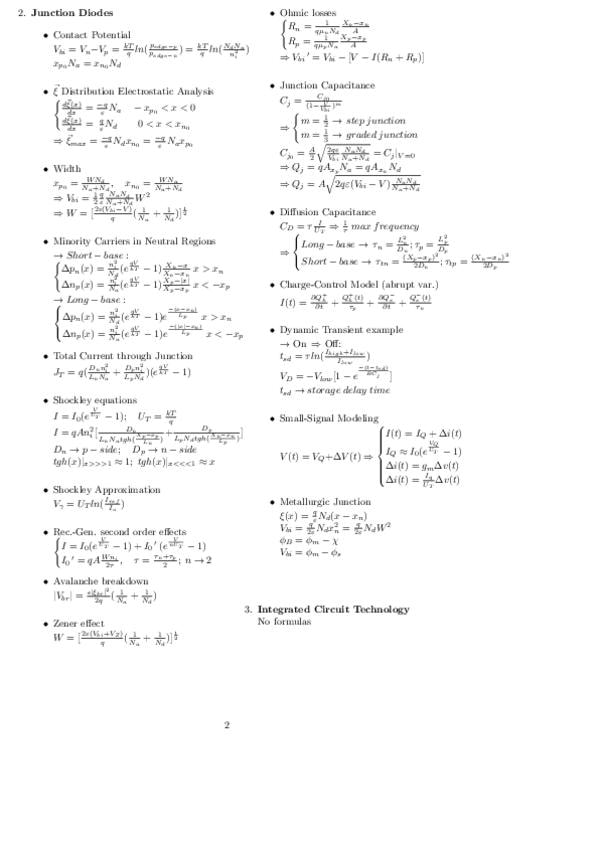 2. Junction Diodes
• Contact Potential
V_bi = V_n − V_p = kT/q ln(p_edge−p / p_edge−n) = kT/q ln(N_d N_a / n_i^2)
x_p0 N_a = x_n0 N_d
• ξ⃗ Distribution Electrostatic Analysis
{ dξ⃗(x)/dx = −q/ε N_a − x_p0 < x < 0
dξ⃗(x)/dx = q/ε N_d 0 < x < x_n0
⇒ ξ⃗_max = −q/ε N_d x_n0 = −q/ε N_a x_p0
• Width
x_p0 = W N_d / (N_a + N_d), x_n0 = W N_a / (N_a + N_d)
⇒ V_bi = 1/2 q/ε N_a N_d / (N_a + N_d) W^2
⇒ W = [2ε(V_bi − V)/q (1/N_a + 1/N_d)]^(1/2)
• Minority Carriers in Neutral Regions
→ Short − base :
{ Δp_n(x) = n_i^2/N_d (e^(qV/kT) − 1) (X_n − x)/(X_n − x_n) x > x_n
Δn_p(x) = n_i^2/N_a (e^(qV/kT) − 1) (X_p − |x|)/(X_p − x_p) x < −x_p
→ Long − base :
{ Δp_n(x) = n_i^2/N_d (e^(qV/kT) − 1)e^(−(x − x_n)/L_p) x > x_n
Δn_p(x) = n_i^2/N_a (e^(qV/kT) − 1)e^(−(|x| − x_n)/L_p) x < −x_p
• Total Current through Junction
J_T = q(D_n n_i^2/(L_n N_a) + D_p n_i^2/(L_p N_d))(e^(qV/kT) − 1)
• Shockley equations
I = I_0(e^(V/U_T) − 1); U_T = kT/q
I = qAn_i^2[D_n/(L_n N_a tgh((X_p − x_p)/L_n)) + D_p/(L_p N_d tgh((X_n − x_n)/L_p))]
D_n → p − side; D_p → n − side
tgh(x)|_x>>>1 ≈ 1; tgh(x)|_x<<<1 ≈ x
• Shockley Approximation
V_γ = U_T ln(I_ref/I_o)
• Rec.-Gen. second order effects
{ I = I_0(e^(V/U_T) − 1) + I_0′(e^(V/nU_T) − 1)
I_0′ = qA W n_i/2τ, τ = (τ_n + τ_p)/2; n → 2
• Avalanche breakdown
|V_br| = ε|ξ_br|^2/2q (1/N_a + 1/N_d)
• Zener effect
W = [2ε(V_bi + V_Z)/q (1/N_a + 1/N_d)]^(1/2)
• Ohmic losses
{ R_n = 1/(qμ_n N_d) (X_n − x_n)/A
R_p = 1/(qμ_p N_a) (X_p − x_p)/A
⇒ V_bi′ = V_bi − [V − I(R_n + R_p)]
• Junction Capacitance
C_j = C_j0/(1 − V/V_bi)^m
⇒ { m = 1/2 → step junction
m = 1/3 → graded junction
C_j0 = A/2 √(2qε/V_bi N_a N_d/(N_a + N_d)) = C_j|_V=0
⇒ Q_j = qA x_p N_a = qA x_n N_d
⇒ Q_j = A√(2qε(V_bi − V) N_a N_d/(N_a + N_d))
• Diffusion Capacitance
C_D = τ I/U_T ⇒ 1/τ max frequency
⇒ { Long − base → τ_n = L_n^2/D_n; τ_p = L_p^2/D_p
Short − base → τ_tn = (X_p − x_p)^2/2D_n; τ_tp = (X_n − x_n)^2/2D_p
• Charge-Control Model (abrupt var.)
I(t) = ∂Q_p^+/∂t + Q_p^+(t)/τ_p + ∂Q_n^−/∂t + Q_n^−(t)/τ_n
• Dynamic Transient example
→ On ⇒ Off:
t_sd = τ ln((I_high + I_low)/I_low)
V_D = −V_low[1 − e^(−(t − t_sd)/RC_j)]
t_sd → storage delay time
• Small-Signal Modeling
V(t) = V_Q + ΔV(t) ⇒ { I(t) = I_Q + Δi(t)
I_Q ≈ I_0(e^(V_Q/U_T) − 1)
Δi(t) = g_m Δv(t)
Δi(t) = I_q/U_T Δv(t)
• Metallurgic Junction
ξ(x) = q/ε N_d(x − x_n)
V_bi = q/2ε N_d x_n^2 = q/2ε N_d W^2
ϕ_B = ϕ_m − χ
V_bi = ϕ_m − ϕ_s
3. Integrated Circuit Technology
No formulas
2